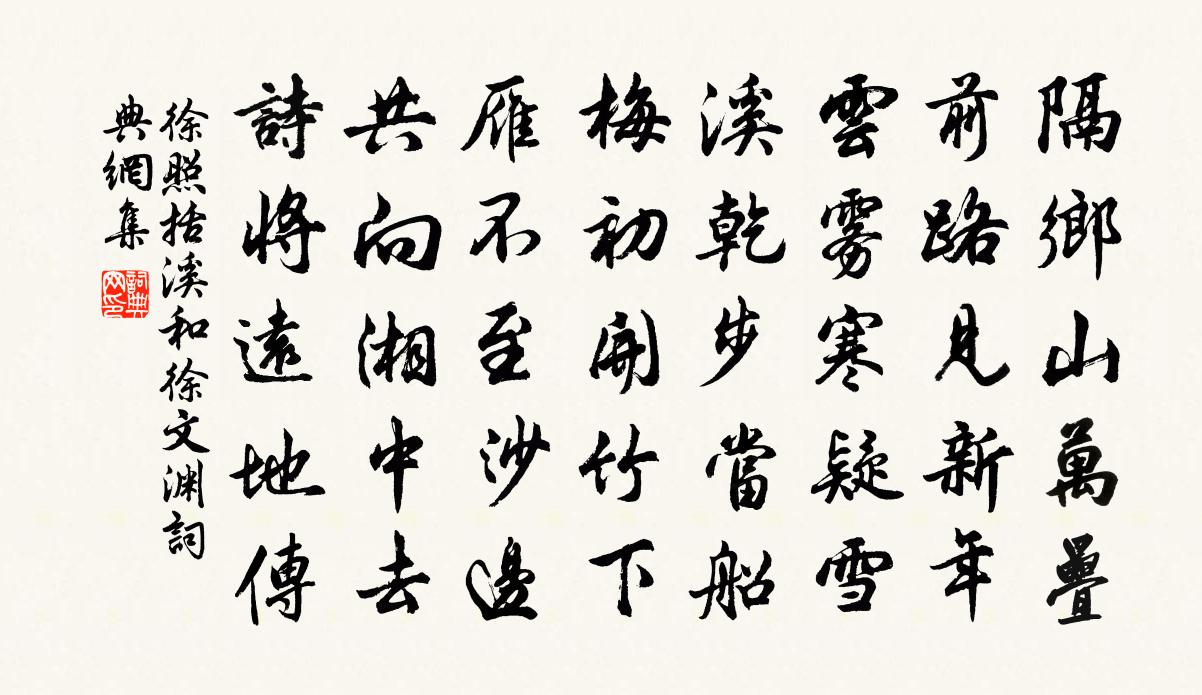 隔鄉山萬疊
前路見新年
雲霧寒疑雪
溪乾步當船
梅初開竹下
雁不至沙邊
共向湘中去
詩將遠地傳
徐照括溪和徐文淵詞
典網集
詞典
网印